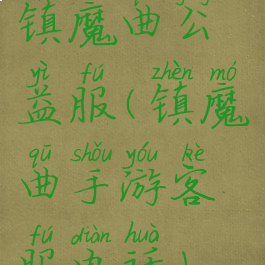 镇魔曲公
yì fú zhèn mó
益服(镇魔
qū shǒu yóu kè
曲手游客
fú diàn huà
服电话)